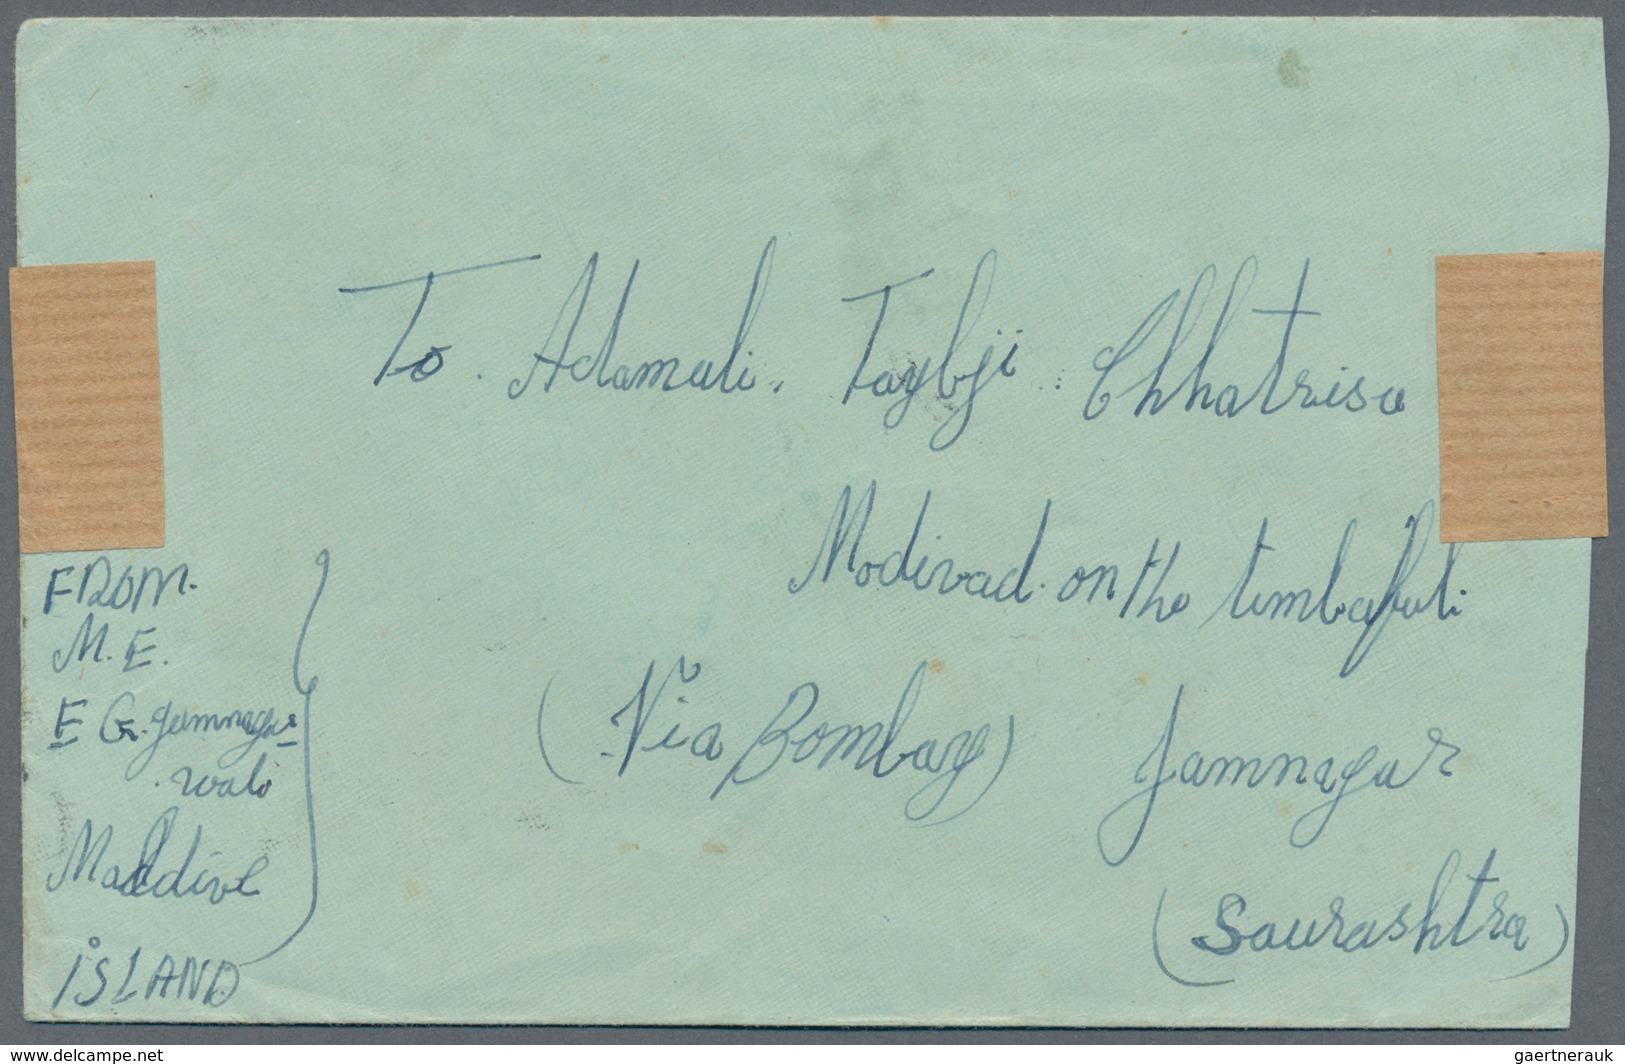 To. Adamali. Taybji Chhatrisa
Modivad. on the timbafuli.
(Via Bombay) Jamnagar
(Saurashtra)
FROM.
M. E.
E G. Jamnagar
wala
Maldive
ISLAND
www.delcampe.net
gaertnerauk